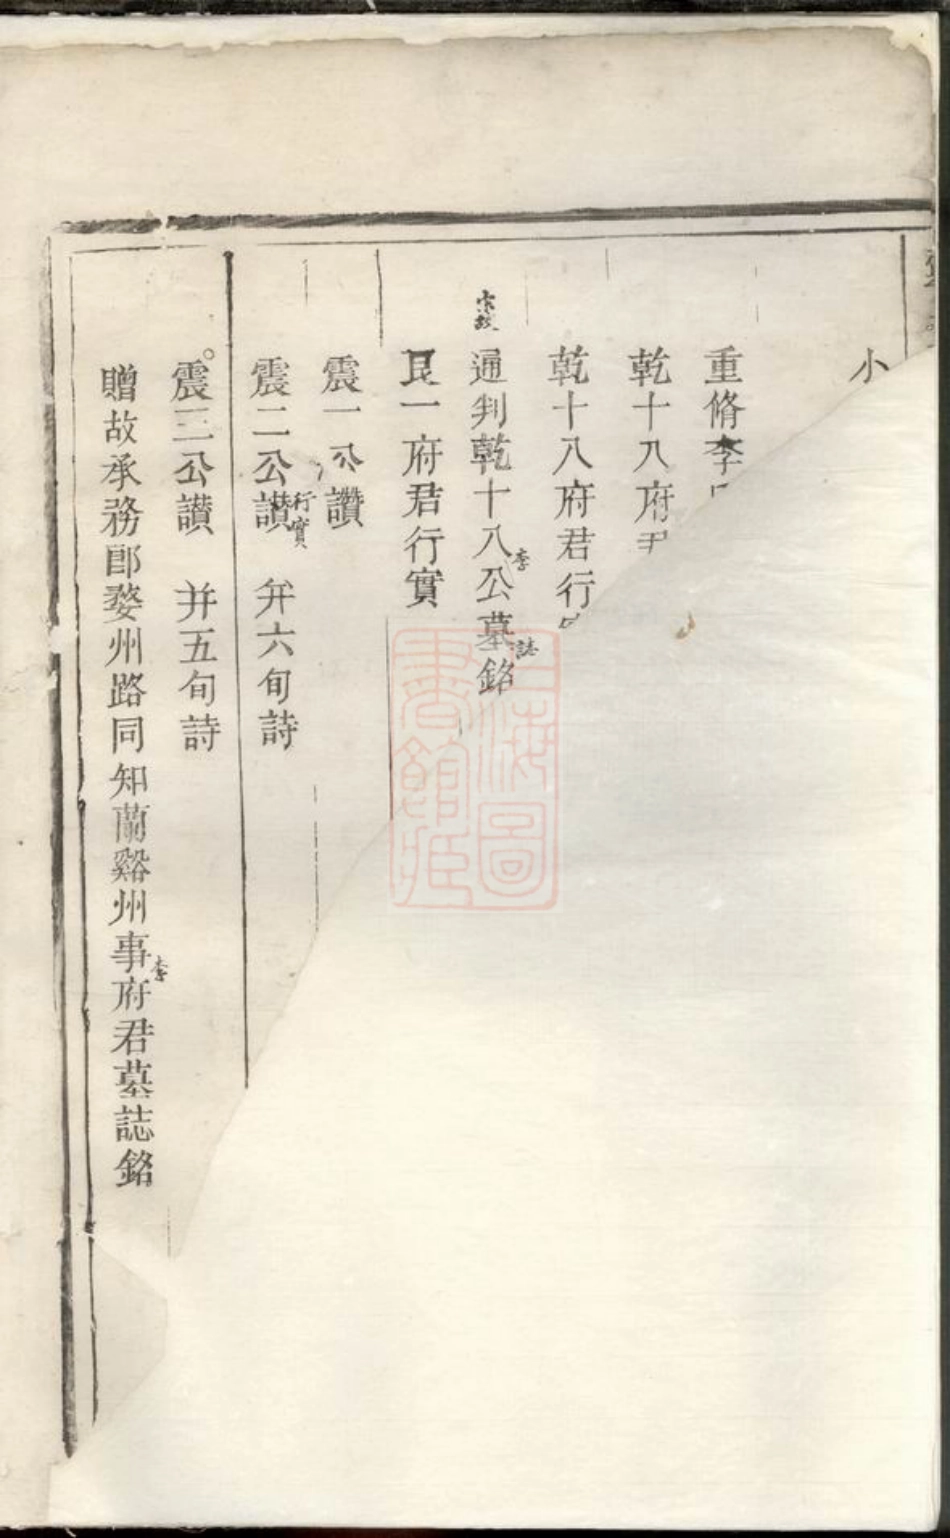 小
重脩李
乾十八府
乾十八府君行
宋故通判乾十八公李墓誌銘
艮一府君行實
震一公讚
震二公讃行實 并六旬詩
震三公讃 并五旬詩
贈故承務郎婺州路同知蘭谿州事李府君墓誌銘
上海圖書館藏